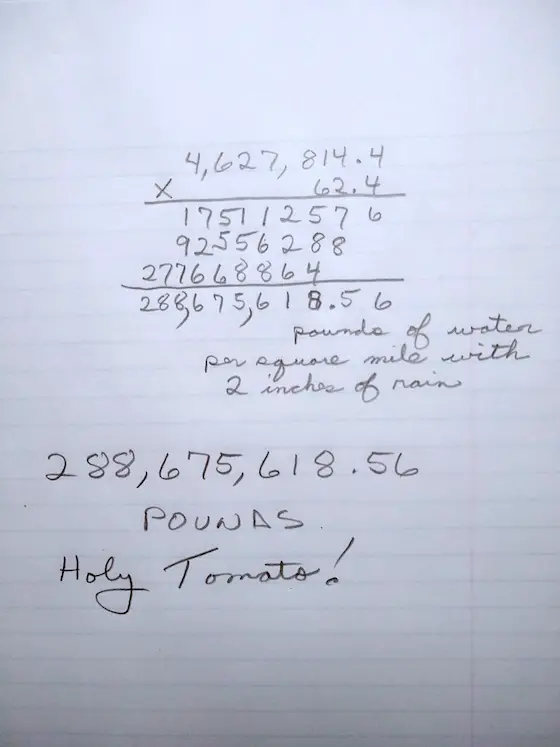 4,627,814.4
X 62.4
175112576
92556288
277668864
288,675,618.56
pounds of water
per square mile with
2 inches of rain
288,675,618.56
POUNDS.
Holy Tomato!